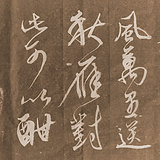 風萬里送
秋雁對
此可以酣